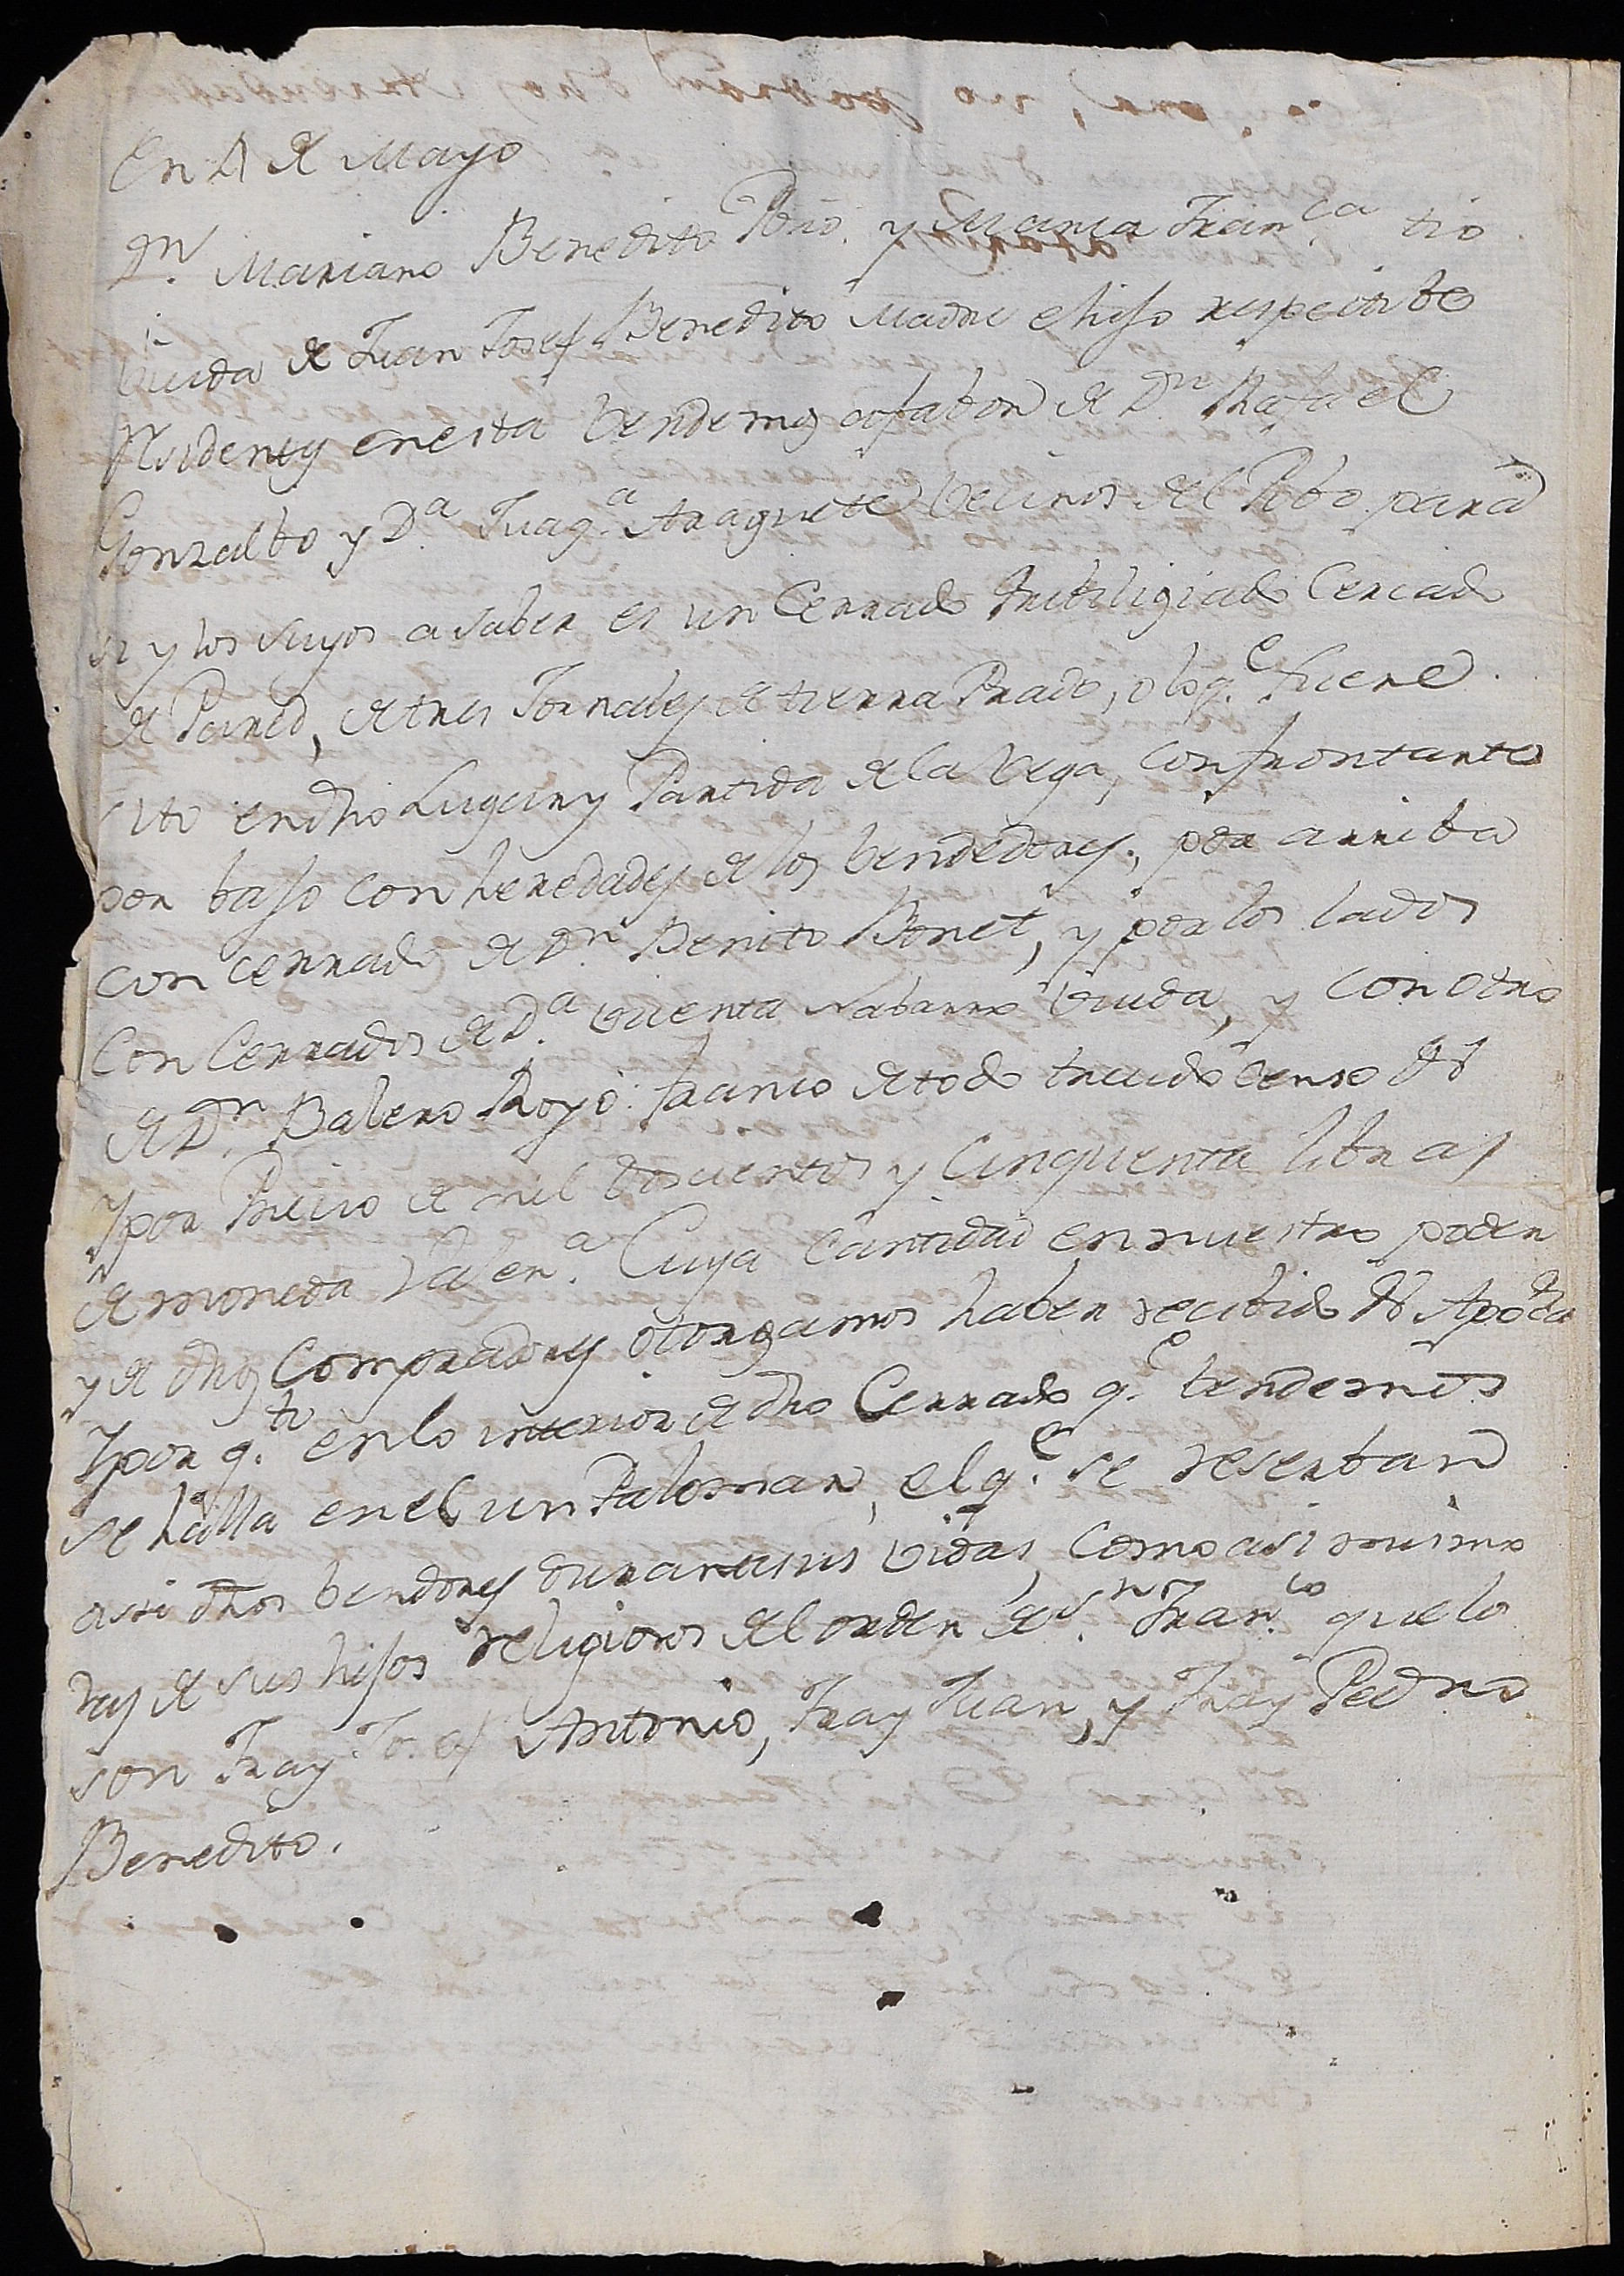 En 4 de Mayo
Dn. Mariano Benedito Pbro. y Maria Fran.ca tio
biuda de Juan Josef Benedito Madre e hijo respectibe
Residentes en esta bendemos a fabor de Dn. Rafael
Gonzalbo y Da. Juaq.a Araguete becinos del Pobo para
si y los suyos a saber es un Cerrado Pribiligiado Cercado
de Pared, de tres Jornales de tierra Prado, o lo q.e fuere
sito en dho Lugar y Partida de la Vega, confrontante
por bajo con heredades de los bendedores; por arriba
con cerrado de Dn. Benito Bonet, y por los lados
con Cerrados de Da. Vicenta Nabarro biuda, y con otro
de Dn. Balero Royo: franco de todo treudo censo &
Y por Precio de mil doscientas y Cinquenta libras
de moneda Valen.a Cuya Cantidad en nuestro poder
y de dhos Compradores otorgamos haber recibido & Apoca
Y por q.to en lo interior de dho Cerrado q.e bendemos
se halla en el un Palomar, el q.e se reserban
assi dhos bendores durante sus vidas, como asi mismo
las de sus hijos religiosos del orden de Sn. Fran.co que lo
son Fray Antonio, Fray Juan, y Fray Pedro
Benedito.